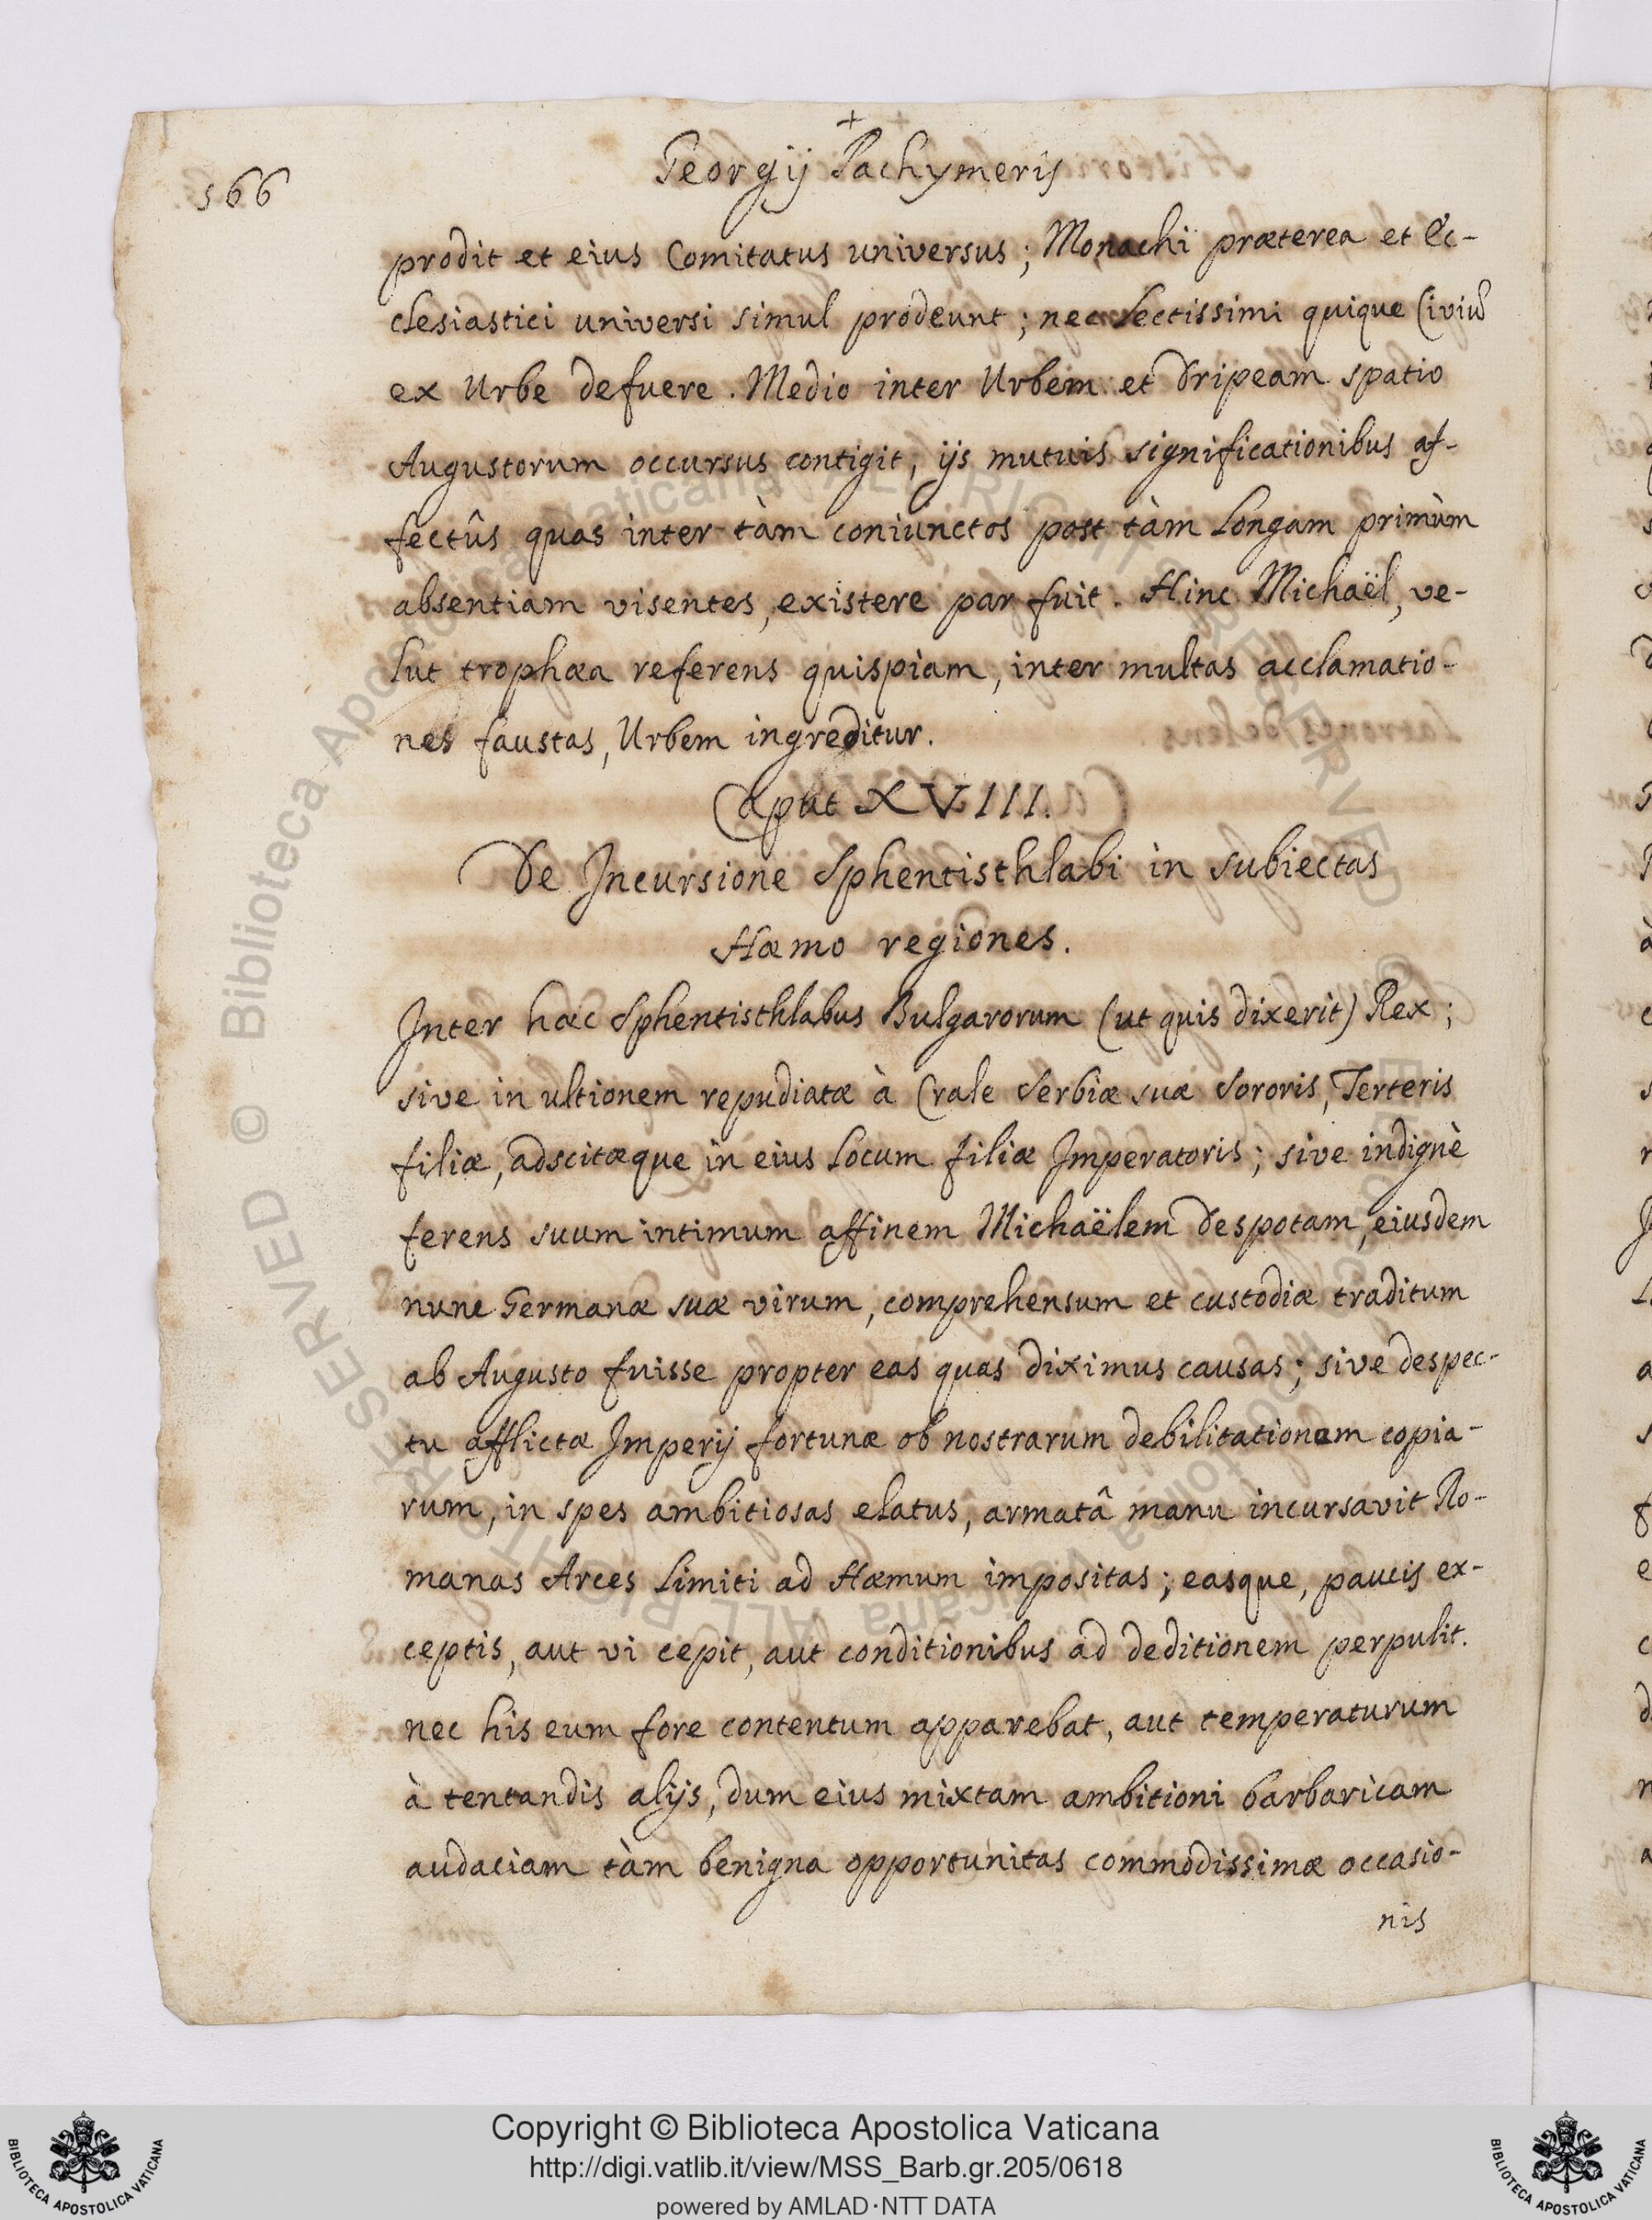 +
566
Georgij Pachymeris
prodit et eius Comitatus universus; Monachi præterea et Ec-
clesiastici universi simul prodeunt; nec lectissimi quique Civiũ
ex Urbe defuere. Medio inter Urbem et Dripeam spatio
Augustorum occursus contigit, ijs mutuis significationibus af-
fectûs quas inter tàm coniunctos post tàm longam primùm
absentiam visentes, existere par fuit. Hinc Michaël, ve-
lut trophæa referens quispiam, inter multas acclamatio-
nes faustas, Urbem ingreditur.
Caput XVIII.
De Incursione Sphentisthlabi in subiectas
Hæmo regiones.
Inter hæc Sphentisthlabus Bulgarorum (ut quis dixerit) Rex;
sive in ultionem repudiatæ à Crale Serbiæ suæ Sororis, Terteris
filiæ, adscitæque in eius locum filiæ Imperatoris; sive indignè
ferens suum intimum affinem Michaëlem Despotam, eiusdem
nunc Germanæ suæ virum, comprehensum et custodiæ traditum
ab Augusto fuisse propter eas quas diximus causas; sive despec-
tu afflictæ Imperij fortunæ ob nostrarum debilitationem copia-
rum, in spes ambitiosas elatus, armatâ manu incursavit Ro-
manas Arces Limiti ad Hæmum impositas; easque, paucis ex-
ceptis, aut vi cepit, aut conditionibus ad deditionem perpulit.
nec his eum fore contentum apparebat, aut temperaturum
à tentandis alijs, dum eius mixtam ambitioni barbaricam
audaciam tàm benigna opportunitas commodissimæ occasio-
nis
Copyright © Biblioteca Apostolica Vaticana
http://digi.vatlib.it/view/MSS_Barb.gr.205/0618
powered by AMLAD·NTT DATA
BIBLIOTECA APOSTOLICA VATICANA
BIBLIOTECA APOSTOLICA VATICANA